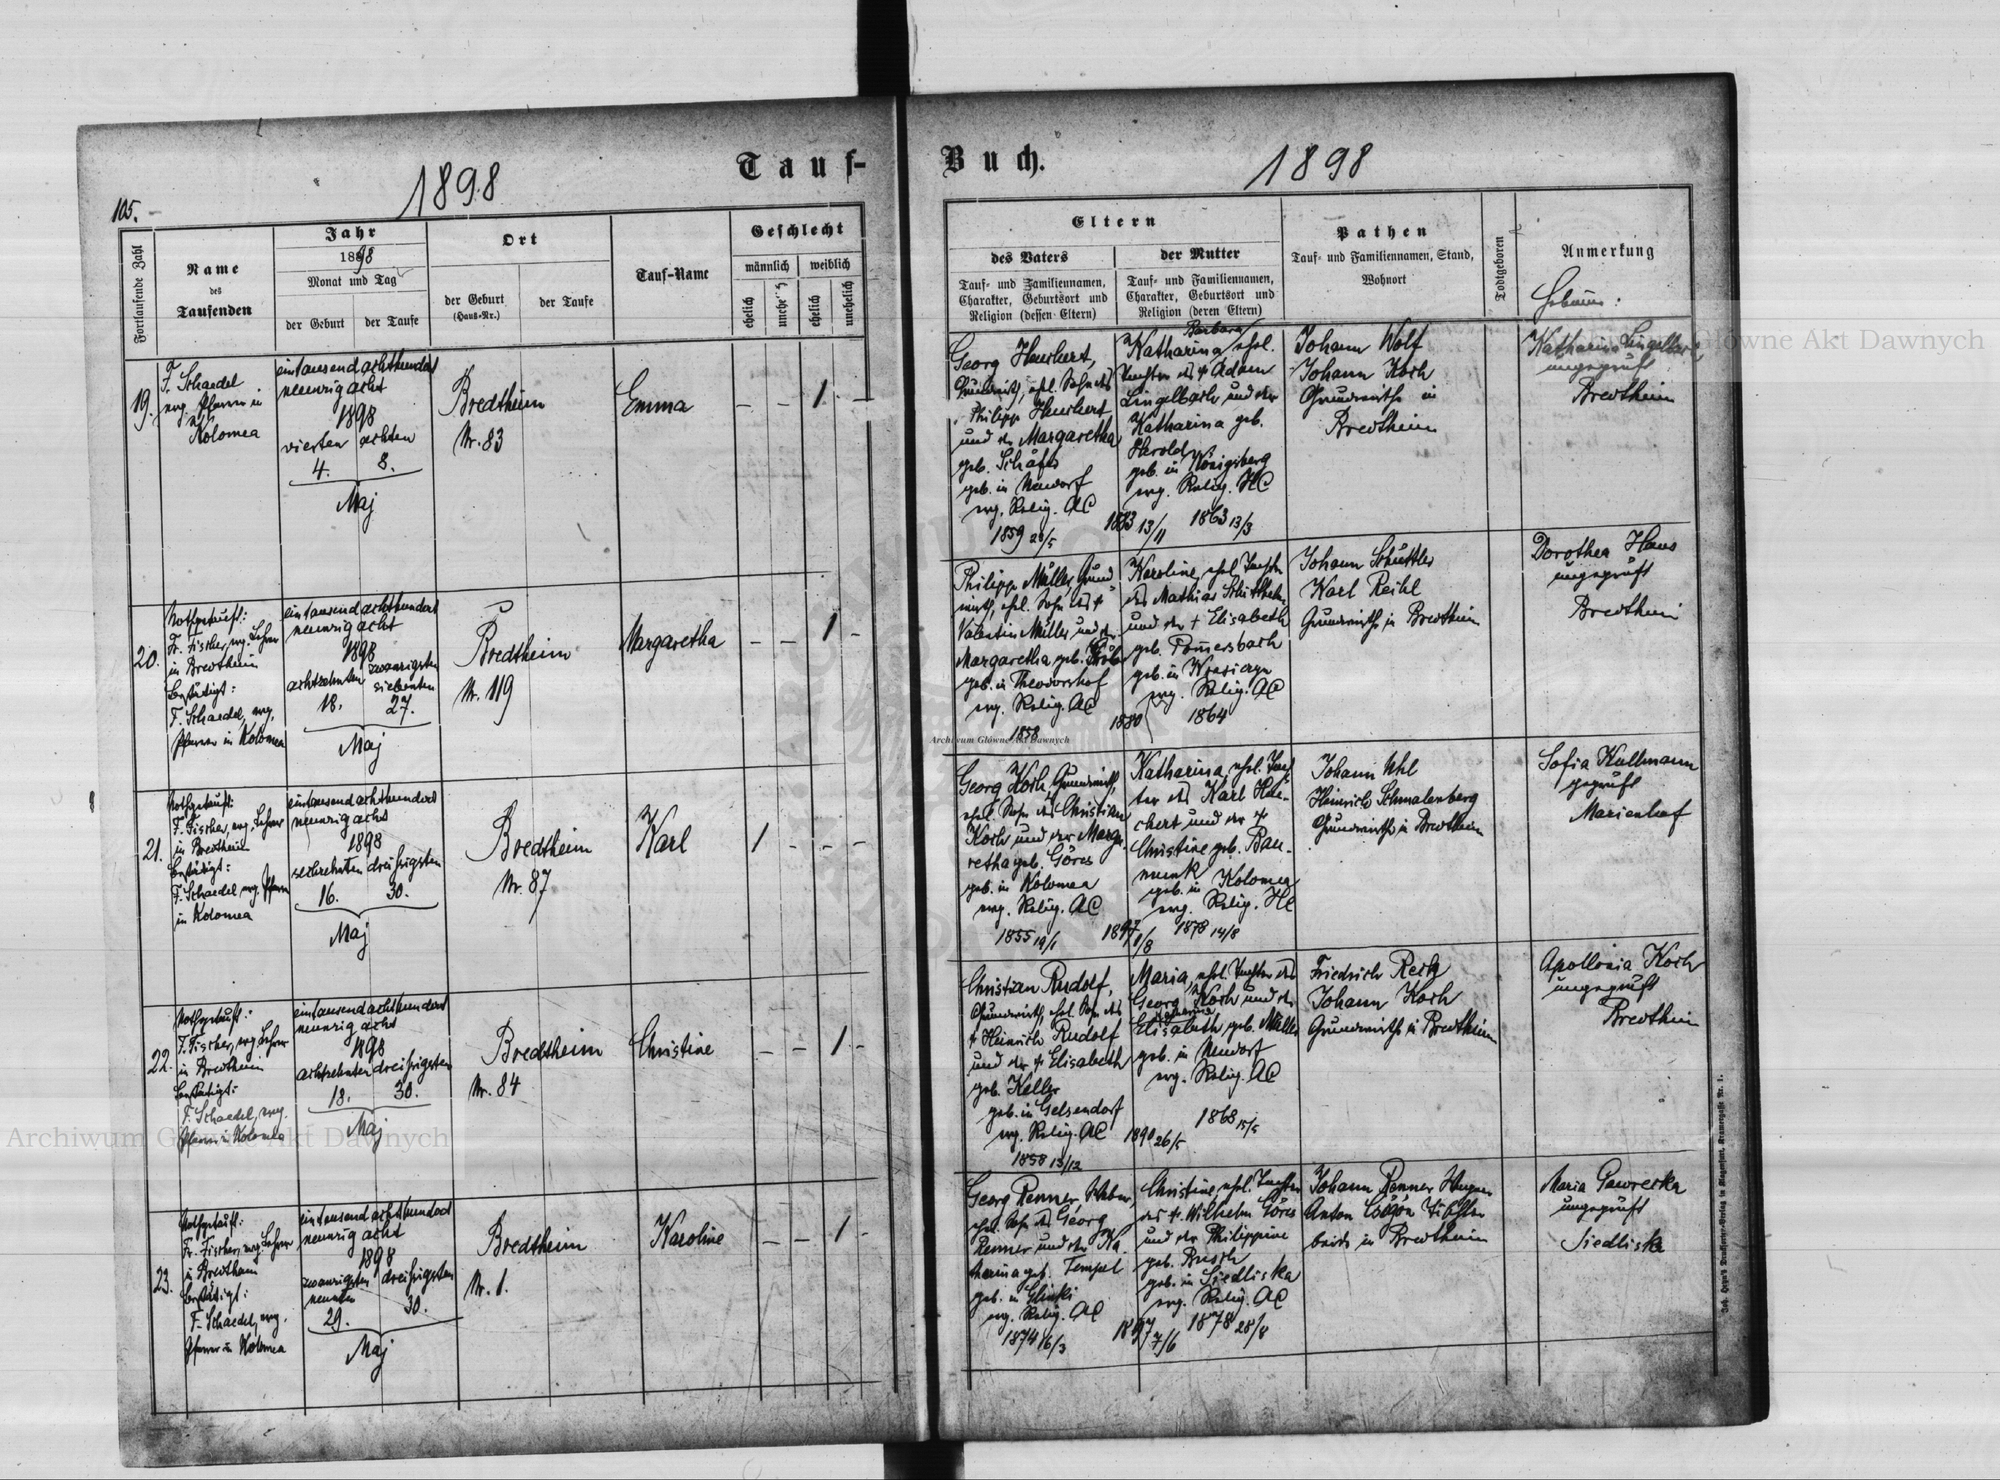 105.
1898
Tauf-
Buch.
1898
Fortlaufende Zahl
Name
des
Taufenden
Jahr
1898
Monat und Tag
der Geburt
der Taufe
Ort
der Geburt
(Haus-Nr.)
der Taufe
Tauf-Name
Geschlecht
männlich
weiblich
ehelich
unehelich
ehelich
unehelich
Eltern
des Vaters
Tauf- und Familiennamen,
Charakter, Geburtsort und
Religion (dessen Eltern)
der Mutter
Tauf- und Familiennamen,
Charakter, Geburtsort und
Religion (deren Eltern)
Pathen
Tauf- und Familiennamen, Stand,
Wohnort
Todtgeboren
Anmerkung
19.
F. Schaedel
evg. Pfarrer in
Kolomea
eintausendachthundert
neunzig acht
1898
vierten achten
4. 8.
Maj
Bredtheim
Nr. 83
Emma
– – 1 -
Georg
Grundwirth, ehel. Sohn des
Philipp
und der Margaretha
geb. Schäfer
geb. in Neudorf
evg. Relig. AC
1859 28/5
Barbara
Katharina, ehel.
Tochter des + Adam
Lingelbach und der
Katharina geb.
Herold
geb. in Königsberg
evg. Relig. HC
1883 13/11 1863 13/3
Johann Wolf
Johann Koch
Grundwirthe in
Bredtheim
Katharina Lingelbach
ungeprüft
Bredtheim
20.
Nothgetauft:
Fr. Fischer, evg. Lehrer
in Bredtheim
Bestätigt:
F. Schaedel, evg.
Pfarrer in Kolomea
eintausendachthundert
neunzig acht
1898
achtzehnten zwanzigsten
siebenten
18. 27.
Maj
Bredtheim
Nr. 119
Margaretha
– – 1 -
Philipp Müller, Grund-
wirth, ehel. Sohn des +
Valentin Müller und der
Margaretha geb.
geb. in Theodorshof
evg. Relig. AC
1858
Karoline, ehel. Tochter
des Mathias
und der + Elisabeth
geb. Pomersbach
geb. in
evg. Relig. AC
1880 1864
Johann Schüttler
Karl Reihl
Grundwirthe in Bredtheim
Dorothea Haus
ungeprüft
Bredtheim
21.
Nothgetauft:
F. Fischer, evg. Lehrer
in Bredtheim
Bestätigt:
F. Schaedel evg. Pfarrer
in Kolomea
eintausendachthundert
neunzig acht
1898
sechzehnten dreißigsten
16. 30.
Maj
Bredtheim
Nr. 87
Karl
1 - - -
Georg Koch, Grundwirth,
ehel. Sohn des Christian
Koch und der Marga-
retha geb. Göres
geb. in Kolomea
evg. Relig. AC
1855 19/1
Katharina, ehel. Toch-
ter des Karl Hei-
chert und der +
Christine geb. Bau-
munk
geb. in Kolomea
evg. Relig. HC
1897 1/8 1878 14/8
Johann Uhl
Heinrich Schmalenberg
Grundwirthe in Bredtheim
Sofia Kullmann
geprüft
Marienhof
22.
Nothgetauft:
F. Fischer, evg. Lehrer
in Bredtheim
Bestätigt:
F. Schaedel, evg.
Pfarrer in Kolomea
eintausendachthundert
neunzig acht
1898
achtzehnten dreißigsten
18. 30.
Maj
Bredtheim
Nr. 84
Christine
– – 1 -
Christian Rudolf,
Grundwirth, ehel. Sohn des
+ Heinrich Rudolf
und der + Elisabeth
geb. Keller
geb. in Gelsendorf
evg. Relig. AC
1858 13/12
Maria, ehel. Tochter des
Georg Koch und der
Katharina
Elisabeth geb. Müller
geb. in Neudorf
evg. Relig. AC
1890 26/5 1868 15/5
Friedrich Rech
Johann Koch
Grundwirthe in Bredtheim
Apollonia Koch
ungeprüft
Bredtheim
23.
Nothgetauft:
Fr. Fischer, evg. Lehrer
in Bredtheim
Bestätigt:
F. Schaedel, evg.
Pfarrer in Kolomea
eintausendachthundert
neunzig acht
1898
zwanzigsten dreißigsten
neunten
29. 30.
Maj
Bredtheim
Nr. 1.
Karoline
– – 1 -
Georg Renner,
ehel. Sohn des Georg
Renner und der Ka-
tharina geb. Tempel
geb. in
evg. Relig. AC
1874 16/3
Christine, ehel. Tochter
des + Wilhelm Göres
und der Philippine
geb. Busch
geb. in Siedliska
evg. Relig. AC
1897 7/6 1878 28/8
Johann Renner
Anton Tischler
beide in Bredtheim
Maria Gawrecka
ungeprüft
Siedliska
Joh. Heyn's Drucksorten-Verlag in Klagenfurt, Kramergasse Nr. 1.
Archiwum Główne Akt Dawnych
Główne Akt Dawnych
Archiwum Główne Akt Dawnych